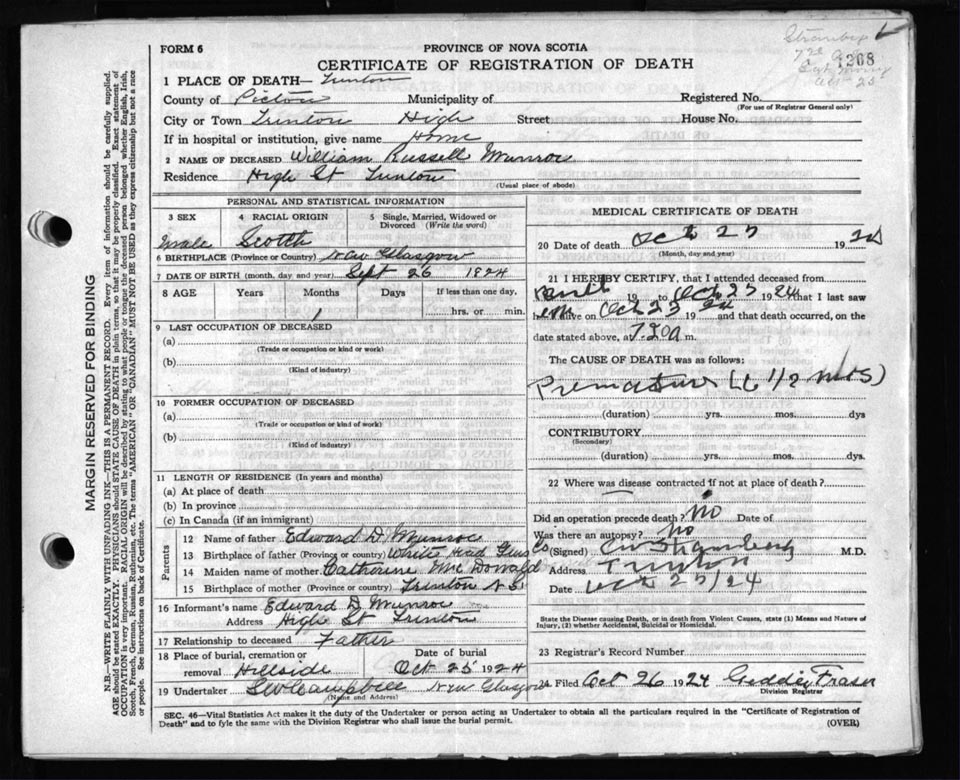 FORM 6
PROVINCE OF NOVA SCOTIA
CERTIFICATE OF REGISTRATION OF DEATH
1208
1 PLACE OF DEATH— Trenton
County of Pictou Municipality of Registered No.
(For use of Registrar General only)
City or Town Trenton High Street House No.
If in hospital or institution, give name Home
2 NAME OF DECEASED William Russell Munroe
Residence High St Trenton
(Usual place of abode)
PERSONAL AND STATISTICAL INFORMATION
3 SEX 4 RACIAL ORIGIN 5 Single, Married, Widowed or Divorced (Write the word)
male Scotch
6 BIRTHPLACE (Province or Country) New Glasgow
7 DATE OF BIRTH (month, day and year) Sept 26 1924
8 AGE Years Months Days If less than one day,
1 hrs. or min.
9 LAST OCCUPATION OF DECEASED
(a)
(Trade or occupation or kind or work)
(b)
(Kind of industry)
10 FORMER OCCUPATION OF DECEASED
(a)
(Trade or occupation or kind of work)
(b)
(Kind of industry)
11 LENGTH OF RESIDENCE (In years and months)
(a) At place of death
(b) In province
(c) In Canada (if an immigrant)
Parents
12 Name of father Edward D. Munroe
13 Birthplace of father (Province or country) White Head Guys Co
14 Maiden name of mother Catherine McDonald
15 Birthplace of mother (Province or country) Trenton N S
16 Informant's name Edward D Munroe
Address High St Trenton
17 Relationship to deceased Father
18 Place of burial, cremation or removal Hillside
Date of burial Oct 25 1924
19 Undertaker Campbell New Glasgow
(Name and Address)
MEDICAL CERTIFICATE OF DEATH
20 Date of death Oct 25 1924
(Month, day and year)
21 I HEREBY CERTIFY, that I attended deceased from
Birth 19 to Oct 25 1924 that I last saw
alive on Oct 23 1924 and that death occurred, on
date stated above, at 7.20 a m.
The CAUSE OF DEATH was as follows:
Premature (6 1/2 mos)
(duration) yrs. mos. dys
CONTRIBUTORY
(Secondary)
(duration) yrs. mos. dys.
22 Where was disease contracted if not at place of death?
Did an operation precede death? No Date of
Was there an autopsy? No
(Signed) M.D.
Address Trenton
Date Oct 25/24
State the Disease causing Death, or in death from Violent Causes, state (1) Means and Nature of Injury, (2) whether Accidental, Suicidal or Homicidal.
23 Registrar's Record Number
24 Filed Oct 26 1924 Fraser
Division Registrar
SEC. 46—Vital Statistics Act makes it the duty of the Undertaker or person acting as Undertaker to obtain all the particulars required in the "Certificate of Registration of
Death" and to fyle the same with the Division Registrar who shall issue the burial permit.
(OVER)
MARGIN RESERVED FOR BINDING
N.B.—WRITE PLAINLY WITH UNFADING INK—THIS IS A PERMANENT RECORD. Every item of information should be carefully supplied.
AGE should be stated EXACTLY. PHYSICIANS should STATE CAUSE OF DEATH in plain terms, so that it may be properly classified. Exact statement of
OCCUPATION is very important. RACIAL ORIGIN will be described by stating to what people or tongue the deceased person belonged whether English, Irish,
Scotch, French, German, Russian, Ruthenian, etc. The terms "AMERICAN" OR "CANADIAN" MUST NOT BE USED as they express citizenship but not a race
or people. See instructions on back of Certificate.